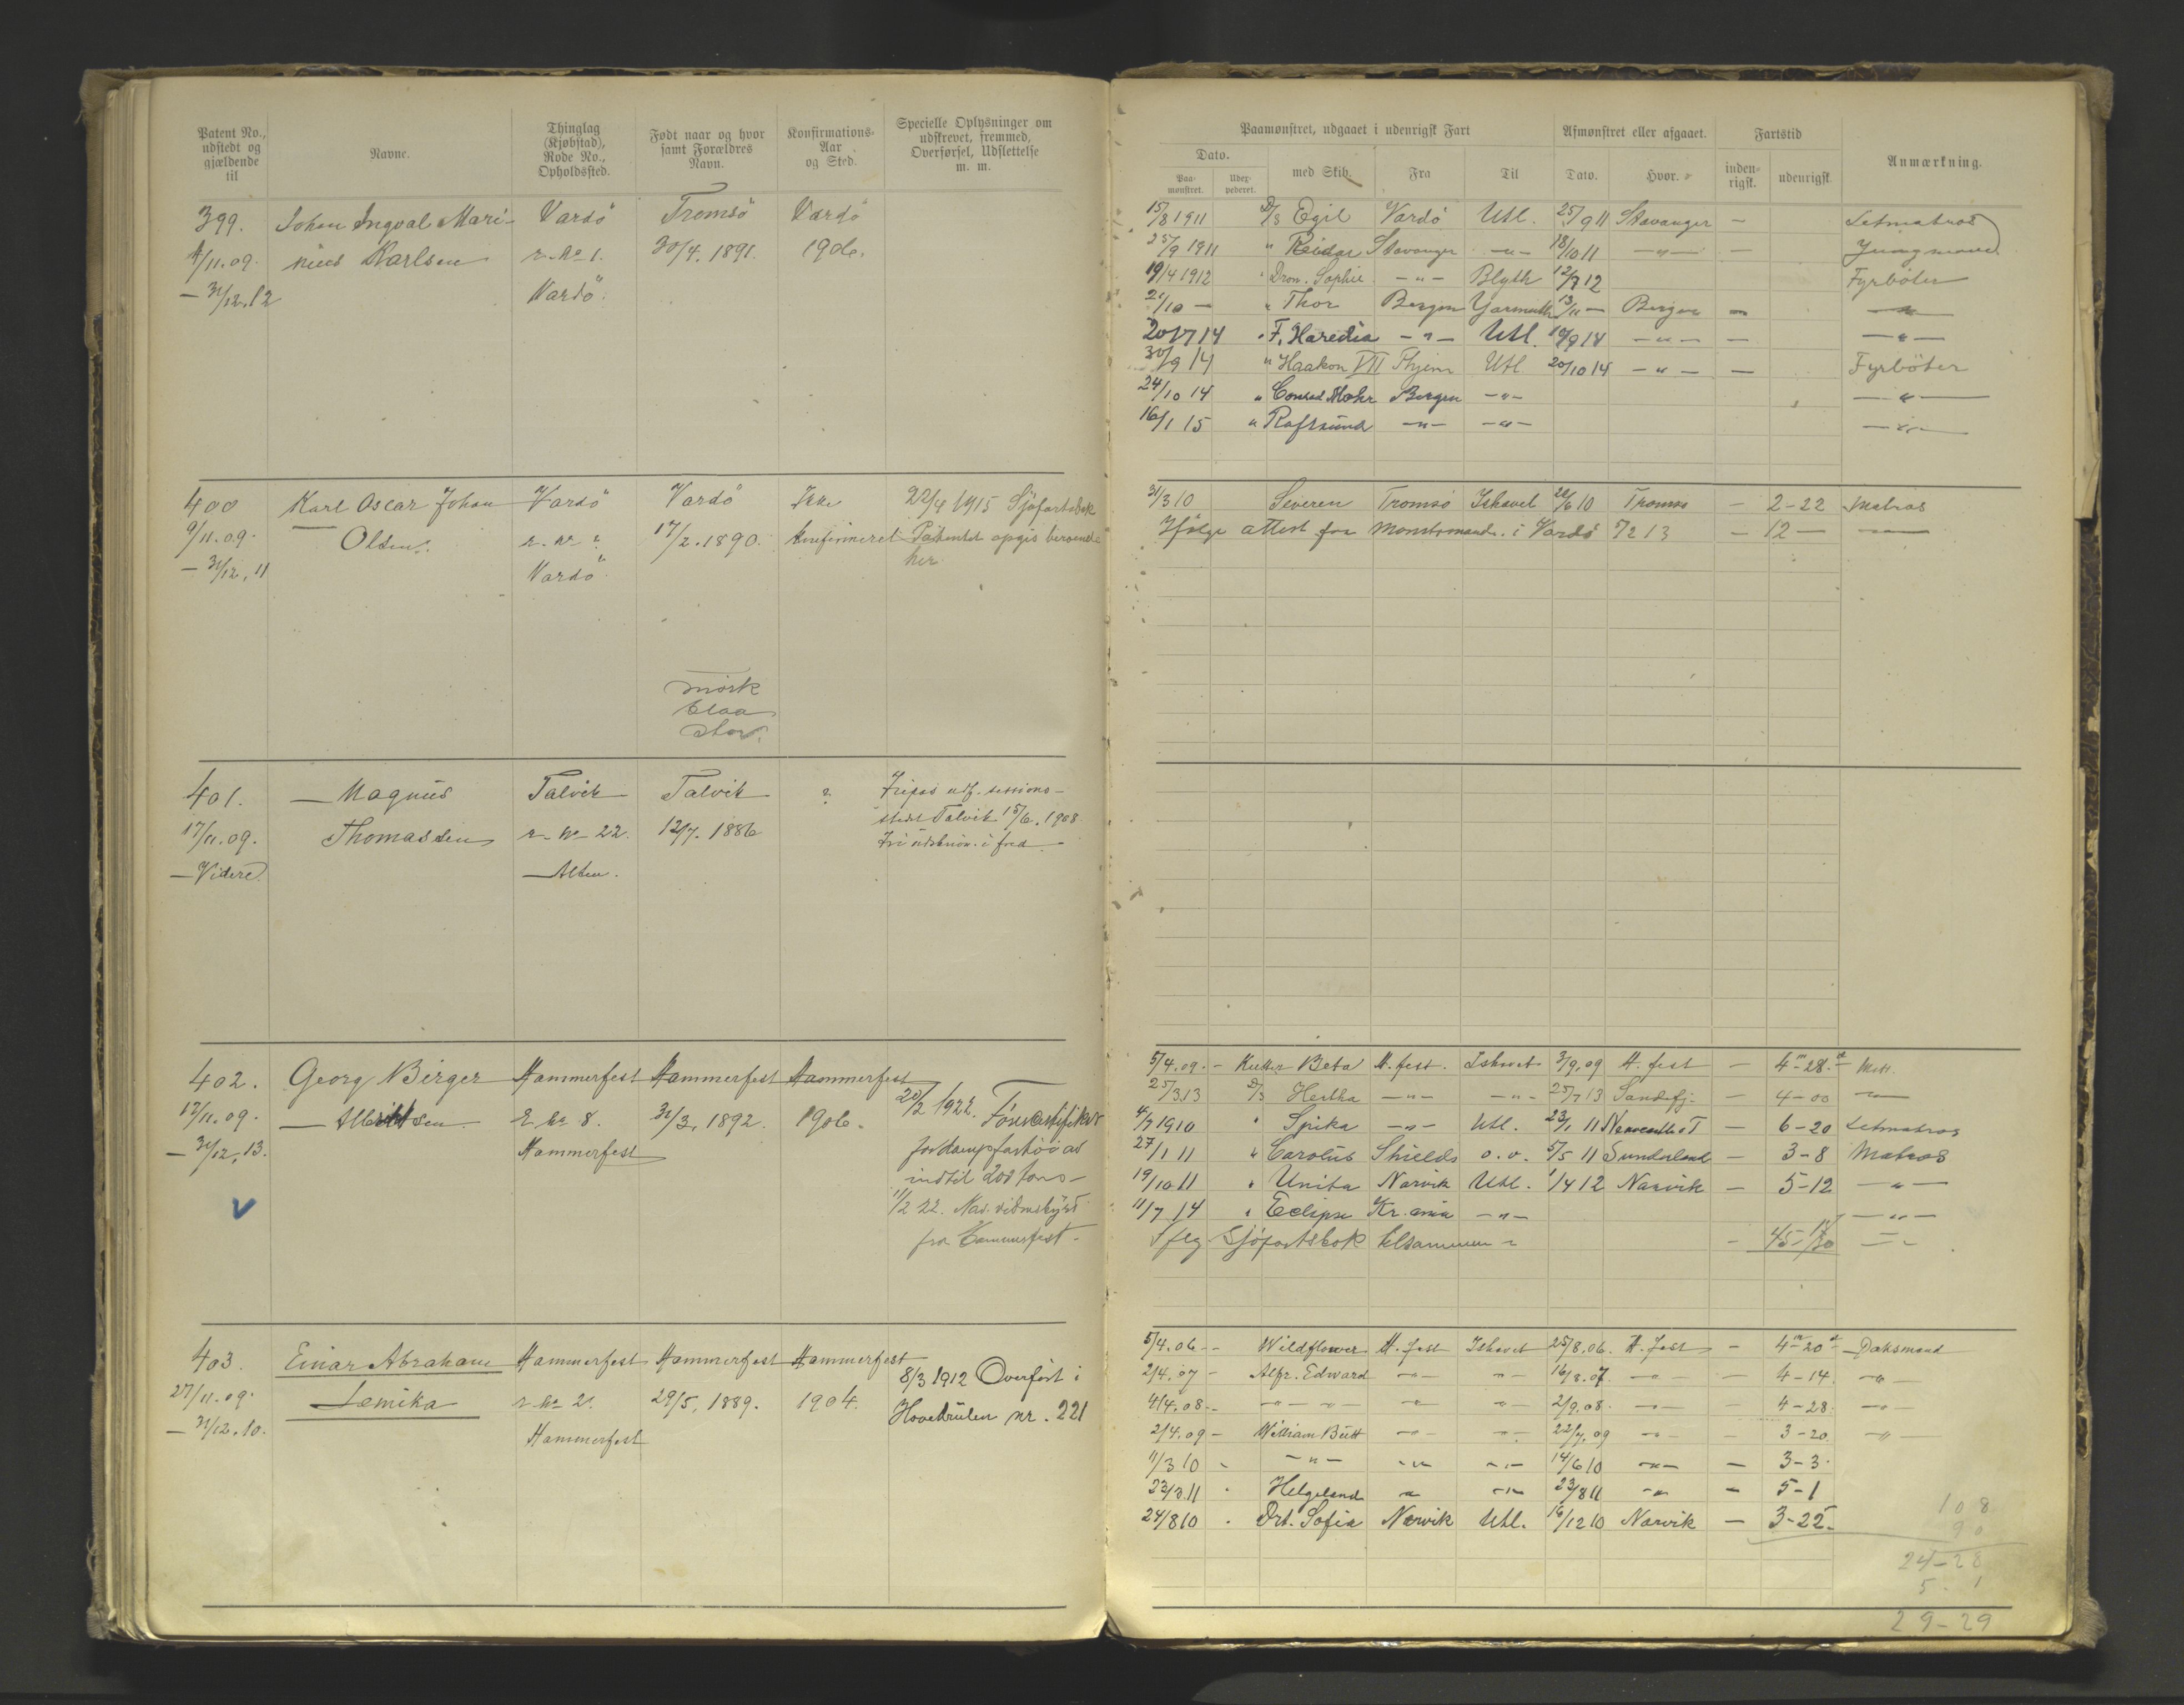 Patent No., udstedt og gjældende til
Navne.
Thinglag (Kjøbstad), Rode No., Opholdssted.
Født naar og hvor samt Forældres Navn.
Konfirmations-Aar og Sted.
Specielle Oplysninger om udskrevet, fremmed, Overførsel, Udslettelse m. m.
399. Johan Ingval Mari- Vardö Tromsö Vardö
4/11.09. nius Karlsen r. No 1. 30/4. 1891. 1906.
— 31/12.12 Vardö.
400 Karl Oscar Johan Vardö Vardö Ikke 22/4 1915 Sjöfartsbok
9/11.09. Olsen. r. No ? 17/2. 1890. konfirmeret Patentet opgis beroende
— 31/12.11 Vardö. her
mørk
blaa
stor.
401. — Magnus Talvik Talvik ?
17/11.09. Thomassen r. No 22. 12/7. 1886 stedet Talvik 15/6. 1908
— Videre. Alten. Fri i fred
402. Georg Birger Hammerfest Hammerfest Hammerfest
17/11.09. — r. No 8. 31/3. 1892. 1906. 20/2 1922.
— 31/12.13. Hammerfest
indtil 200 tons —
11/2 22.
fra Hammerfest.
403. Einar Abraham Hammerfest Hammerfest Hammerfest
27/11.09. Lemika r. No 21. 29/5. 1889. 1904. 8/3 1912 Overført i
— 31/12.10. Hammerfest Hovedrulen nr. 221
Paamønstret, udgaaet i udenrigsk Fart
Afmønstret eller afgaaet.
Fartstid
Anmærkning.
Dato.
Paa-mønstret.
Udex-pederet.
med Skib.
Fra
Til
Dato.
Hvor.
inden-rigsk.
udenrigsk
15/8 1911 D/S Egil Vardö Utl. 25/9 11 Stavanger — Letmatros
25/9 1911 " Reidar Stavanger — " — 18/10 11 — " — Jungmand
19/4 1912 " Dron. Sophie — " — Blyth 12/7 12 Fyrböter
21/10 — " Thor Bergen Yarmouth 13/11 — Bergen — — " —
20/7 14 " F. Haredia — " — Utl. 10/9 14 — " — — — " —
30/9 14 " Haakon VII Thjem Utl 20/10 14 — " — — Fyrböter
24/10 14 " Conrad Mohr Bergen — " — — " —
16/1 15 " Raftsund — " — — " — — " —
31/3 10 Severen Tromsö Ishavet 22/6 10 Tromsö — 2-22 Matros
Ifølge attest fra Mønstsmands. i Vardö 7/2 13 — 12 — —
5/4.09. — Kutter Beta H.fest. Ishavet 3/9.09 H.fest — 4 m 28 d
25/3 13 D/S Hertha — " — — " — 25/7 13 Sandefj. — 4-00 —
4/7 1910 " Spika — " — Utl. 23/1 11 Newcastle o T — 6-20 Letmatros
27/1 11 " Carolus Shields o.v. 5/5 11 Sunderland — 3-8 Matros
19/10 11 " Unita Narvik Utl. 1/4 12 Narvik — 5-12 — " —
11/7 14 " Eclipse Kr.ania — " — — " —
Iflg Sjöfartsbok tilsammen —
5/4.06 — Wildflower H.fest Ishavet 25/8.06. H.fest — 4 m 20 d Daksmand
2/4.07 — Alfr. Edward — " — — " — 16/8.07. — " — — 4-14. — " —
4/4.08 — — " — — " — — " — — " — 2/9.08. — " — — 4-28. — " —
2/4.09 — William Butt — " — — " — 22/7.09 — " — — 3-20. — " —
11/3 10 — — " — — " — — " — 14/6 10 — " — — 3-3.
23/3 11 Helgeland — " — — " — 23/8 11 — " — — 5-1
24/8 10 Drt. Sofia Narvik Utl. 16/12 10 Narvik — 3-22
108
90
24-28
5. 1
29-29